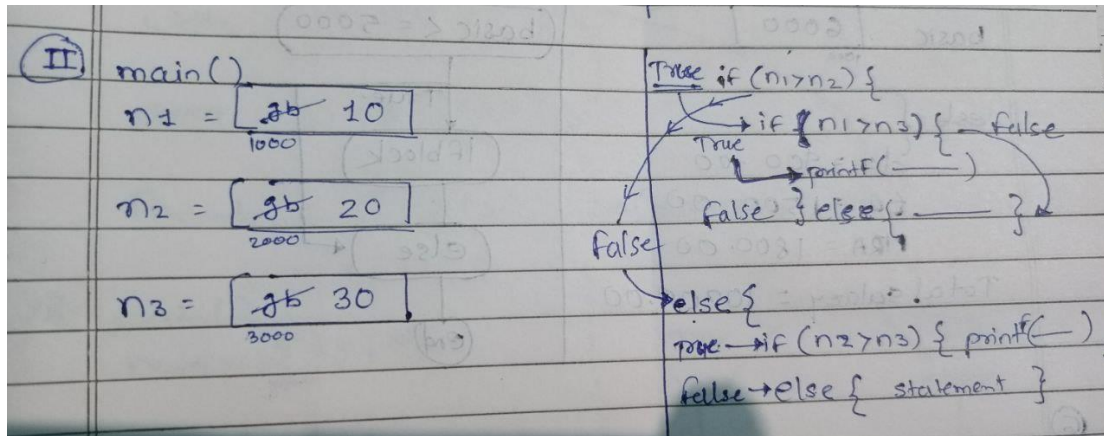 II
main()
n1 = gb 10
1000
n2 = gb 20
2000
n3 = gb 30
3000
True if (n1>n2) {
if (n1>n3) { false
True
printf( )
false } else { }
false
else {
true if (n2>n3) { printf( )
false else { statement }